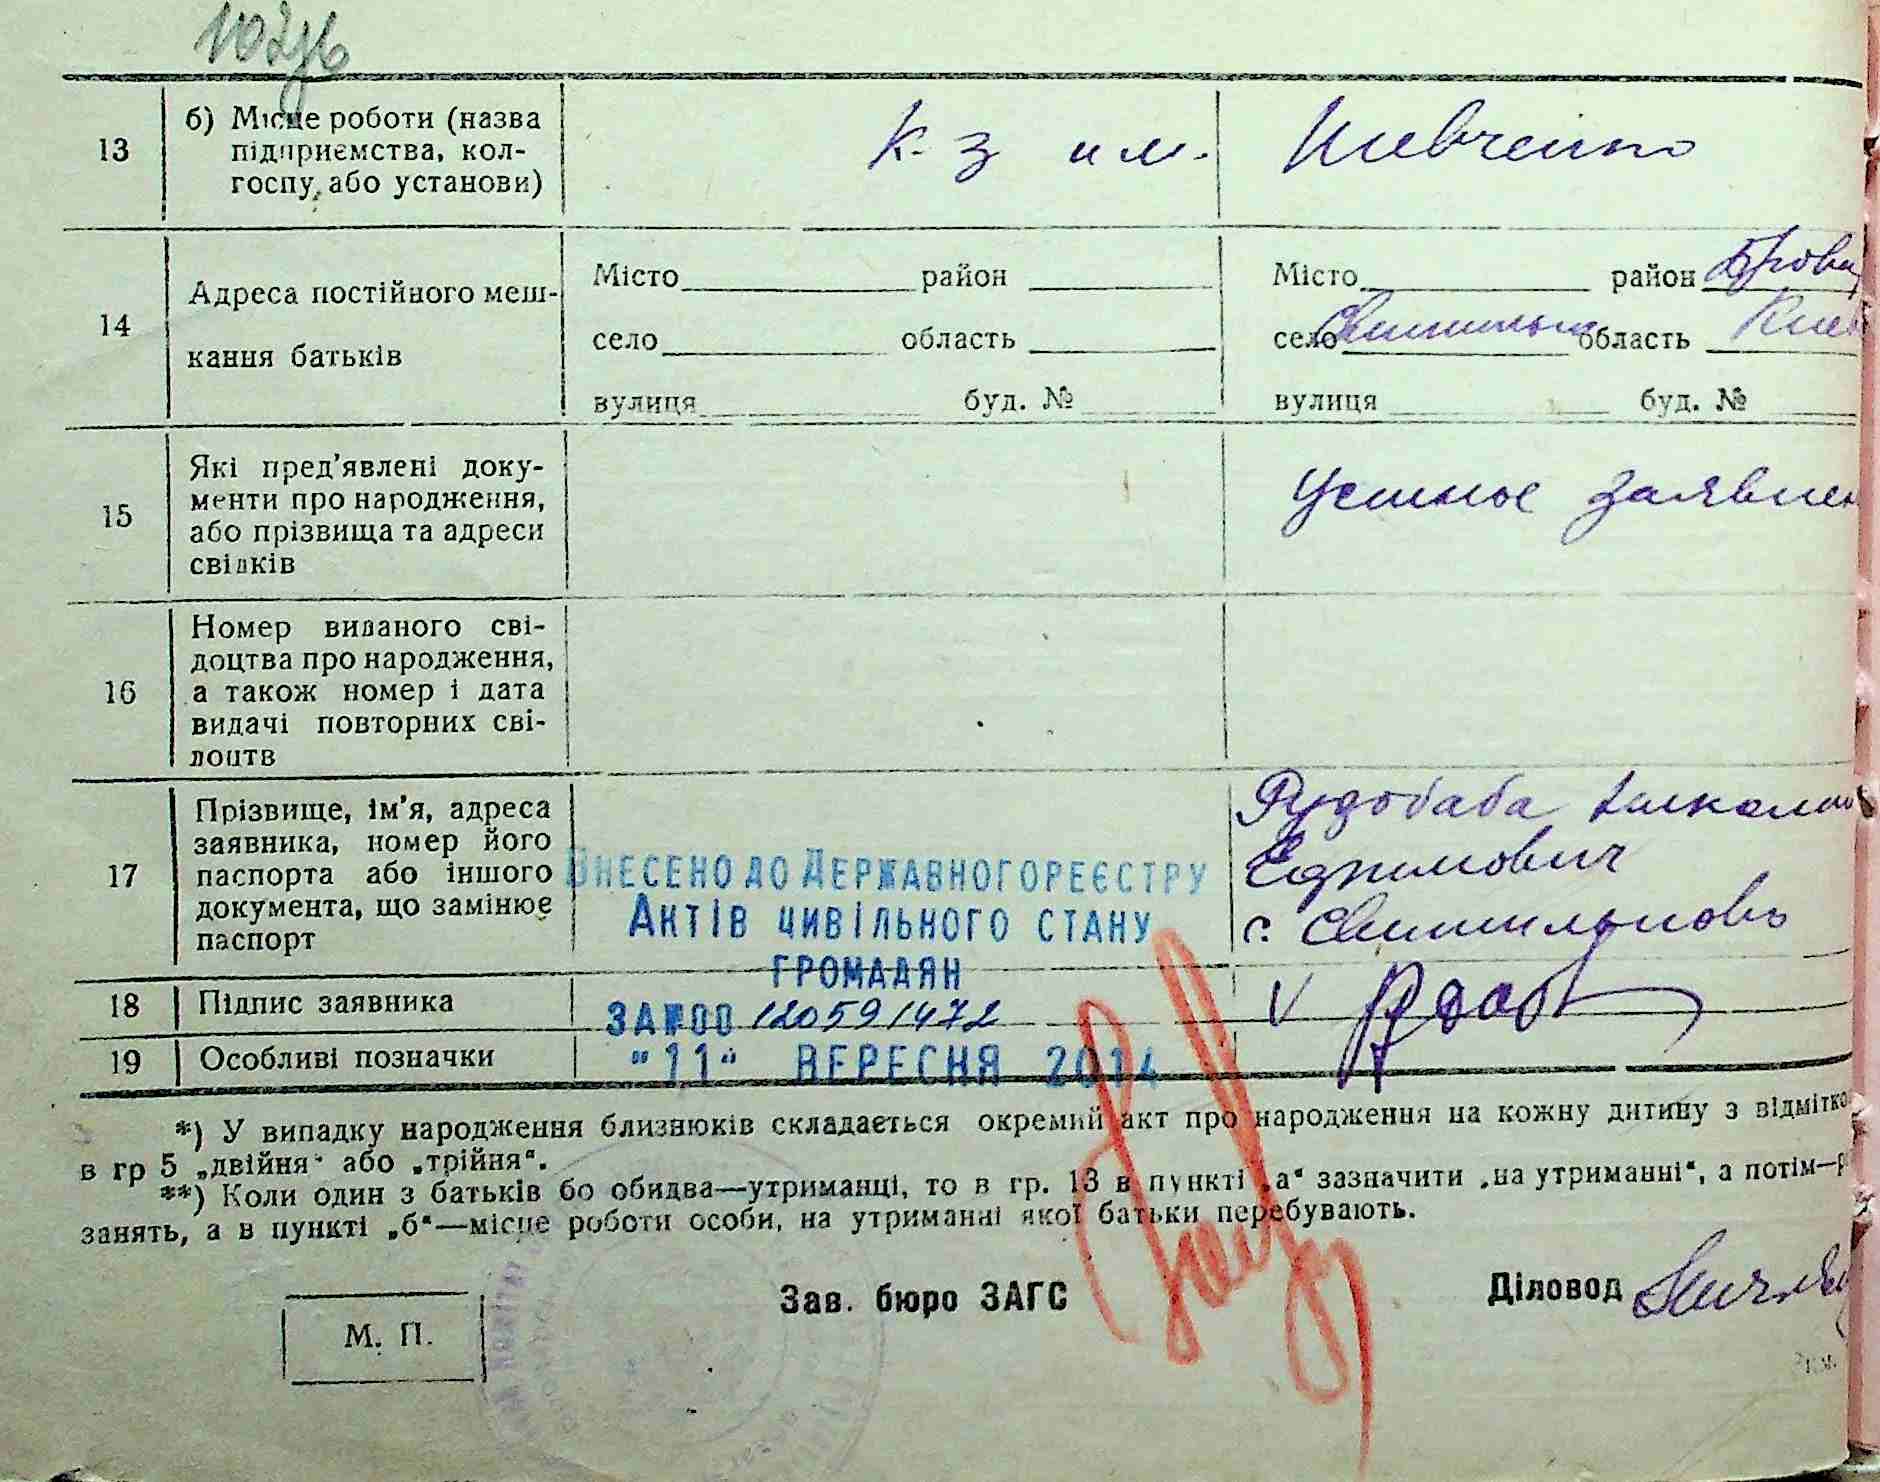 13
б) Місце роботи (назва
підприємства, кол-
госпу, або установи)
К-з им. Шевченко
14
Адреса постійного меш-
кання батьків
Місто район
село область
вулиця буд. №
Місто район Брова
село область Киев
вулиця буд. №
15
Які пред'явлені доку-
менти про народження,
або прізвища та адреси
свідків
Устное заявлен
16
Номер виданого сві-
доцтва про народження,
а також номер і дата
видачі повторних сві-
доцтв
17
Прізвище, ім'я, адреса
заявника, номер його
паспорта або іншого
документа, що замінює
паспорт
Рудобаба
Ефимович
с.
Внесено до Державного реєстру
Актів цивільного стану
громадян
за №00120591472
"11" вересня 2014
18
Підпис заявника
V
19
Особливі позначки
*) У випадку народження близнюків складається окремий акт про народження на кожну дитину з відмітко
в гр 5 „двійня" або „трійня".
**) Коли один з батьків бо обидва—утриманці, то в гр. 13 в пункті „а" зазначити „на утриманні", а потім—р
занять, а в пункті „б"—місце роботи особи, на утриманні якої батьки перебувають.
М. П.
Зав. бюро ЗАГС
Діловод